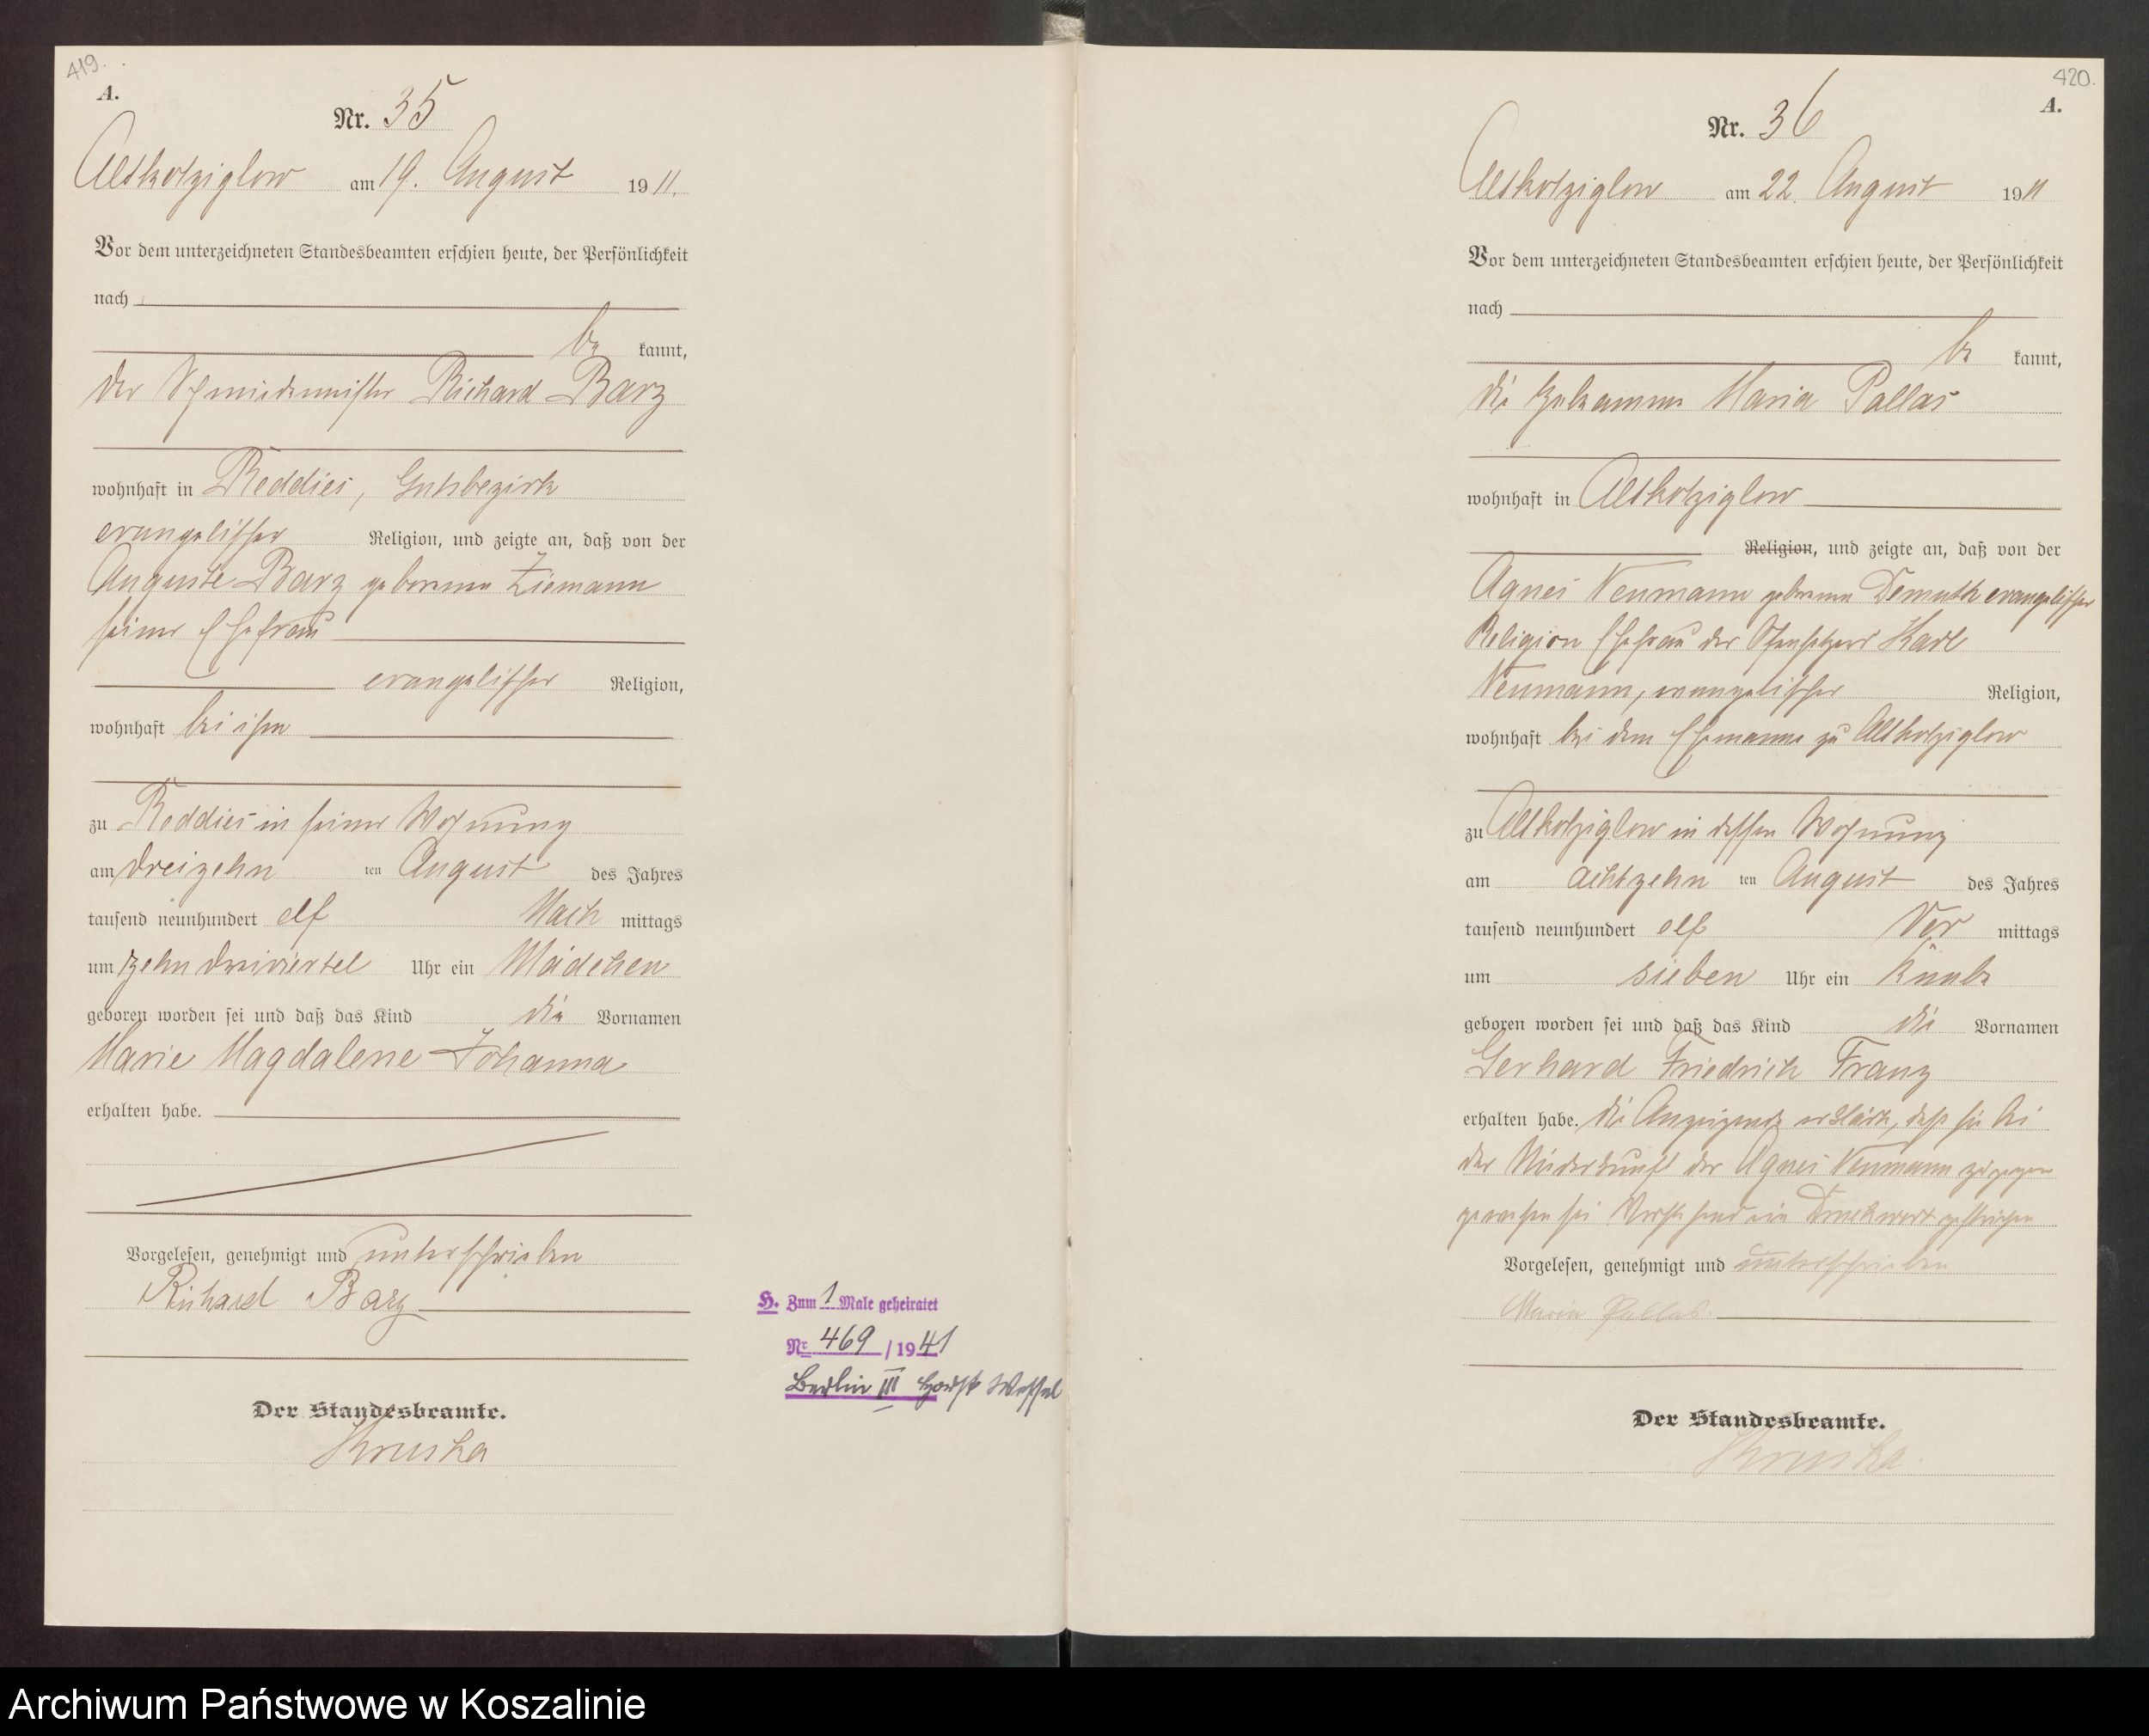 419.
A.
Nr. 35
Altkolziglow am 19. August 1911.
Vor dem unterzeichneten Standesbeamten erschien heute, der Persönlichkeit
nach
be kannt,
der Schmiedemeister Richard Barz
wohnhaft in Reddies, Gutsbezirk
evangelischer Religion, und zeigte an, daß von der
Auguste Barz geborenen Ziemann
seiner Ehefrau
evangelischer Religion,
wohnhaft bei ihm
zu Reddies in seiner Wohnung
am dreizehn ten August des Jahres
tausend neunhundert elf Nach mittags
um zehn dreiviertel Uhr ein Mädchen
geboren worden sei und daß das Kind die Vornamen
Marie Magdalene Johanna
erhalten habe.
Vorgelesen, genehmigt und unterschrieben
Richard Barz
Der Standesbeamte.
Kruska
H. Zum 1 Male geheiratet
Nr. 469 / 1941
Berlin III Horst Wessel
420.
A.
Nr. 36
Altkolziglow am 22. August 1911
Vor dem unterzeichneten Standesbeamten erschien heute, der Persönlichkeit
nach
be kannt,
die Hebamme Maria Pallas
wohnhaft in Altkolziglow
Religion, und zeigte an, daß von der
Agnes Neumann geborenen Demuth evangelischer
Religion Ehefrau des Ofensetzers Karl
Neumann, evangelischer Religion,
wohnhaft bei dem Ehemanne zu Altkolziglow
zu Altkolziglow in dessen Wohnung
am achtzehn ten August des Jahres
tausend neunhundert elf Vor mittags
um sieben Uhr ein Knabe
geboren worden sei und daß das Kind die Vornamen
Gerhard Friedrich Franz
erhalten habe. Die Anzeigende erklärte, daß sie bei
der Niederkunft der Agnes Neumann zugegen
gewesen sei Vorstehend ein Druckwort gestrichen
Vorgelesen, genehmigt und unterschrieben
Maria Pallas.
Der Standesbeamte.
Kruska.
Archiwum Państwowe w Koszalinie